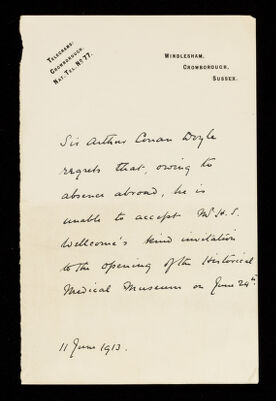 TELEGRAMS:
CROWBOROUGH.
NAT. TEL. No 77.
WINDLESHAM,
CROWBOROUGH,
SUSSEX.
Sir Arthur Conan Doyle
regrets that, owing to
absence abroad, he is
unable to accept Mr H. S.
Wellcome's kind invitation
to the opening of the Historical
Medical Museum on June 24th.
11 June 1913.